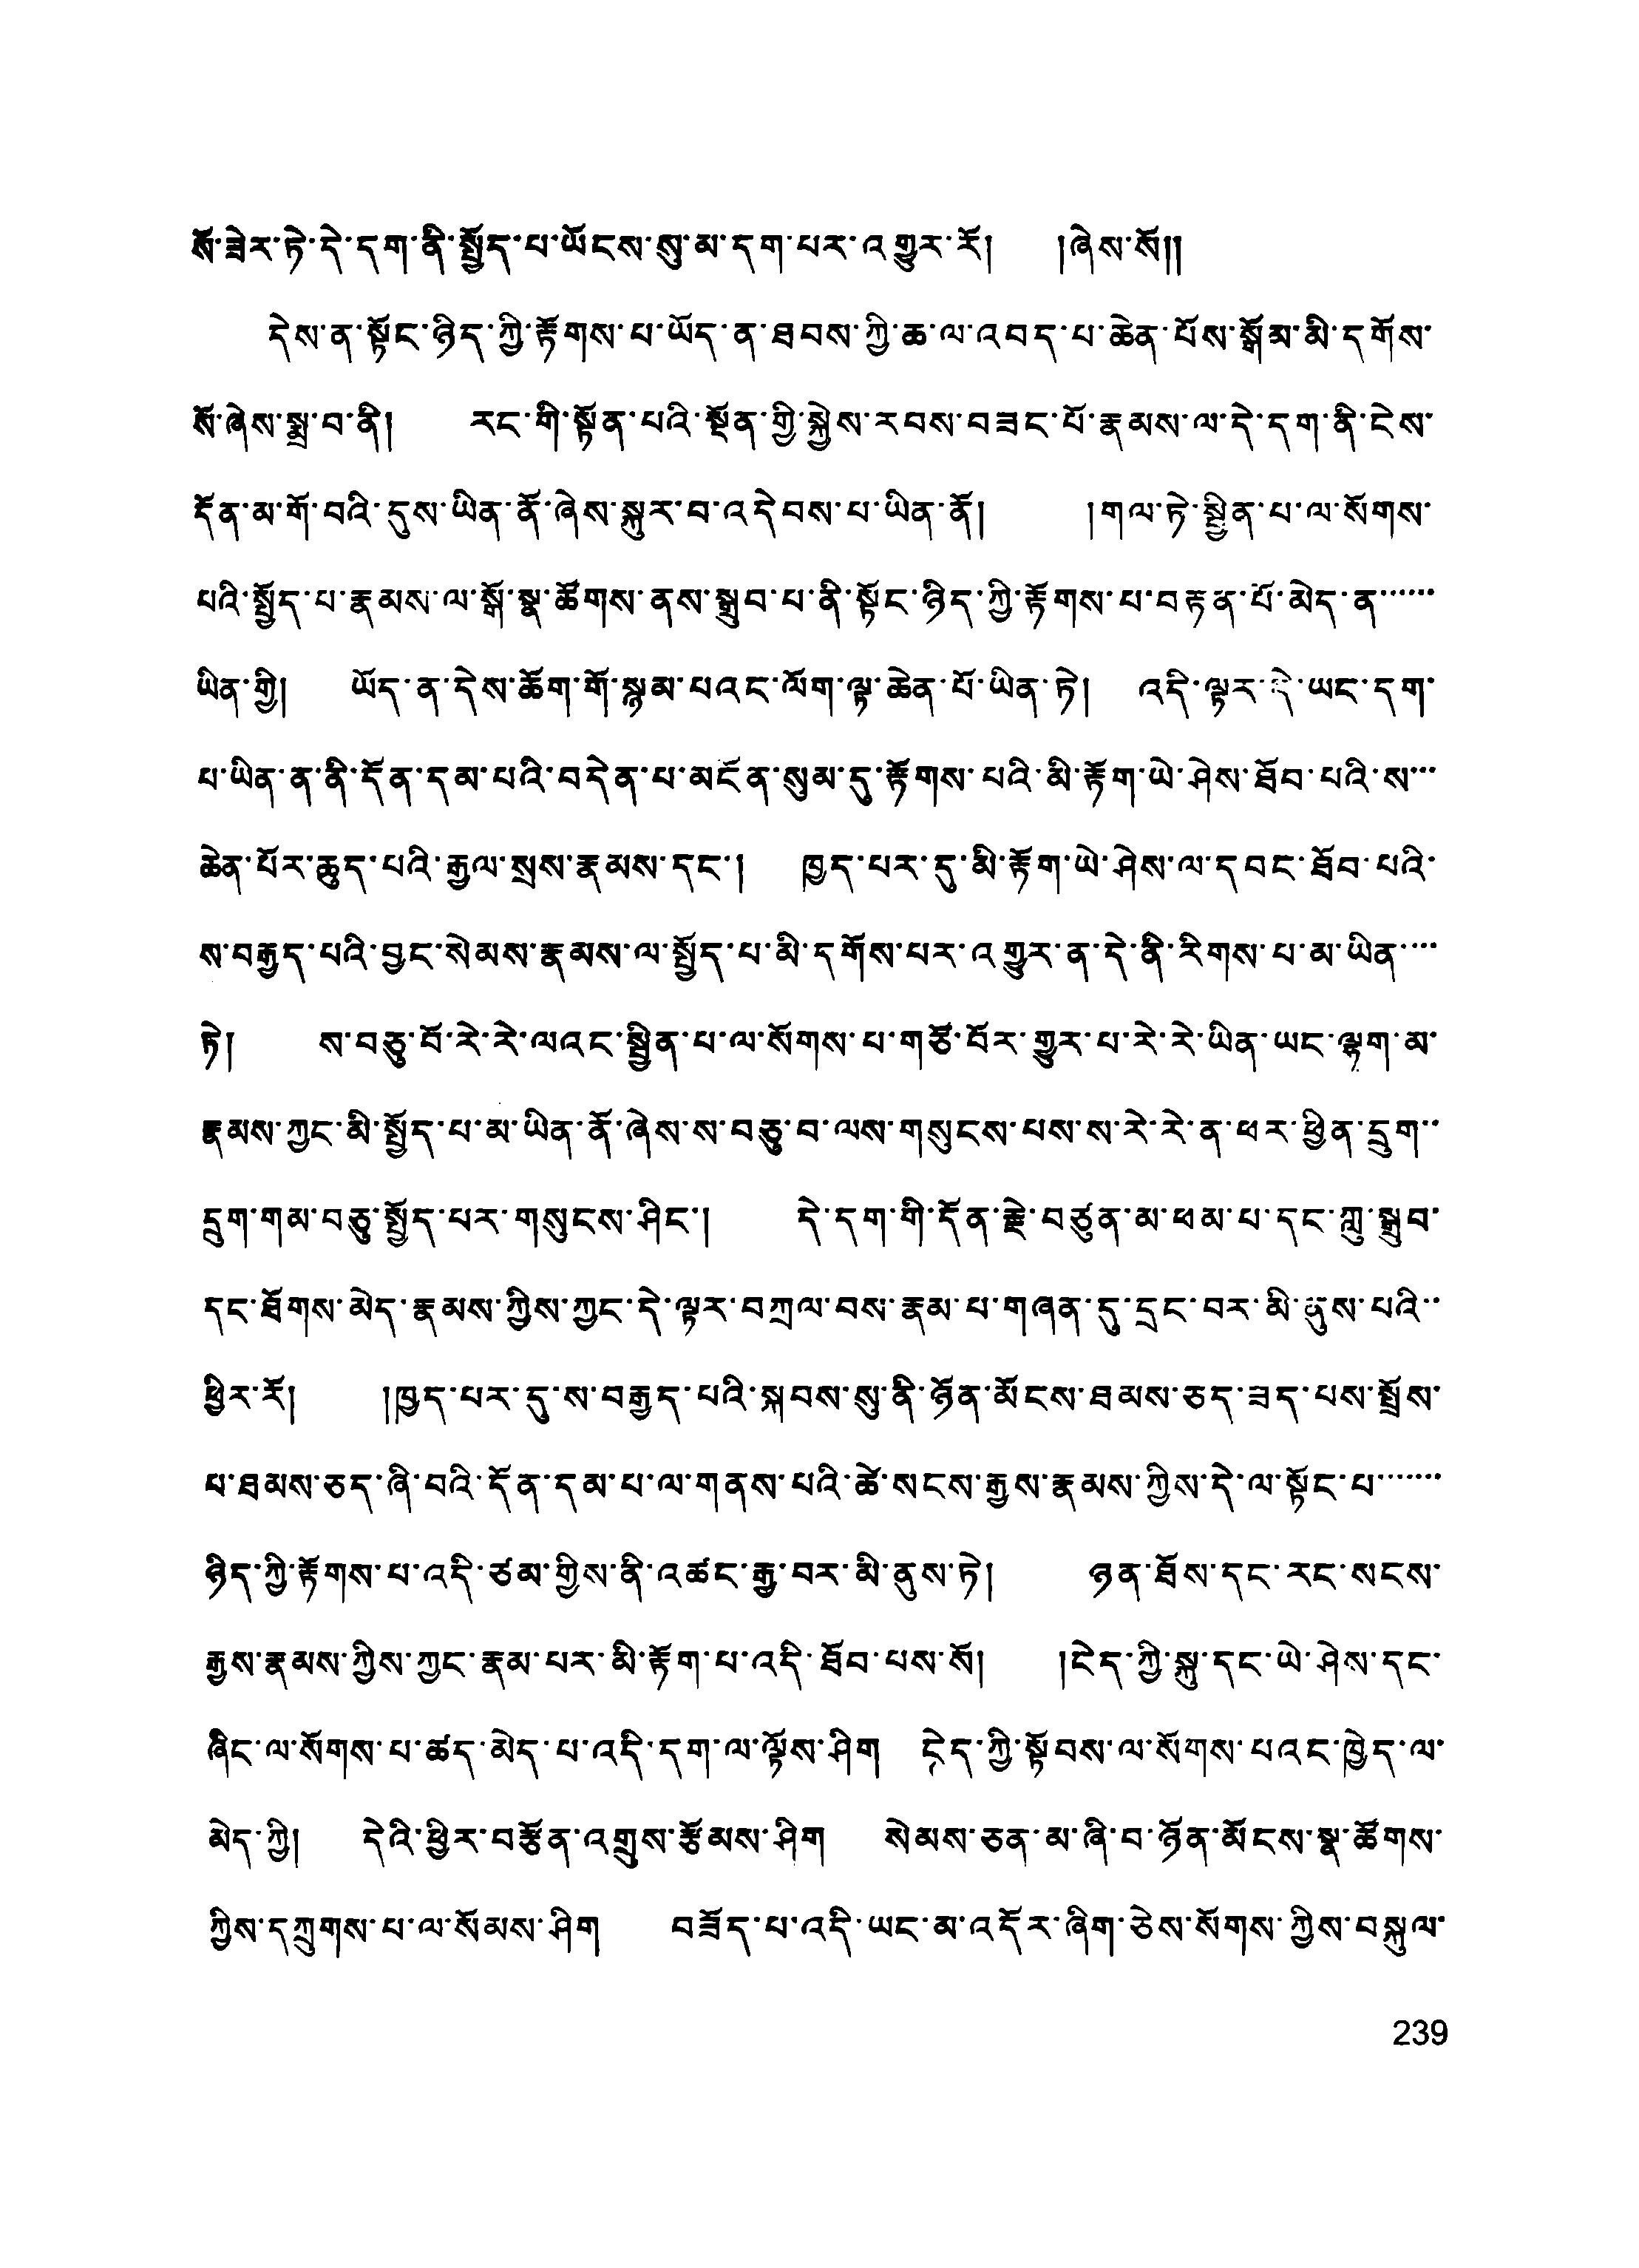 སོ་ཟེར་ཏེ་དེ་དག་ནི་སྤྱོད་པ་ཡོངས་སུ་མ་དག་པར་འགྱུར་རོ།   །ཞེས་སོ།།
དེས་ན་སྟོང་ཉིད་ཀྱི་རྟོགས་པ་ཡོད་ན་ཐབས་ཀྱི་ཆ་ལ་འབད་པ་ཆེན་པོས་སྒོམ་མི་དགོས་
སོ་ཞེས་སྨྲ་བ་ནི།   རང་གི་སྟོན་པའི་སྔོན་གྱི་སྐྱེས་རབས་བཟང་པོ་རྣམས་ལ་དེ་དག་ནི་ངེས་
དོན་མ་གོ་བའི་དུས་ཡིན་ནོ་ཞེས་སྐུར་བ་འདེབས་པ་ཡིན་ནོ།   །གལ་ཏེ་སྦྱིན་པ་ལ་སོགས་
པའི་སྤྱོད་པ་རྣམས་ལ་སྒོ་སྣ་ཚོགས་ནས་སྒྲུབ་པ་ནི་སྟོང་ཉིད་ཀྱི་རྟོགས་པ་བརྟན་པོ་མེད་ན་་་་་་
ཡིན་གྱི།   ཡོད་ན་དེས་ཆོག་གོ་སྙམ་པའང་ལོག་ལྟ་ཆེན་པོ་ཡིན་ཏེ།   འདི་ལྟར་དེ་ཡང་དག་
པ་ཡིན་ན་ནི་དོན་དམ་པའི་བདེན་པ་མངོན་སུམ་དུ་རྟོགས་པའི་མི་རྟོག་ཡེ་ཤེས་ཐོབ་པའི་ས་་་
ཆེན་པོར་ཆུད་པའི་རྒྱལ་སྲས་རྣམས་དང་།   ཁྱད་པར་དུ་མི་རྟོག་ཡེ་ཤེས་ལ་དབང་ཐོབ་པའི་
ས་བརྒྱད་པའི་བྱང་སེམས་རྣམས་ལ་སྤྱོད་པ་མི་དགོས་པར་འགྱུར་ན་དེ་ནི་རིགས་པ་མ་ཡིན་་་་
ཏེ།   ས་བཅུ་པོ་རེ་རེ་ལའང་སྦྱིན་པ་ལ་སོགས་པ་གཙོ་བོར་གྱུར་པ་རེ་རེ་ཡིན་ཡང་ལྷག་མ་
རྣམས་ཀྱང་མི་སྤྱོད་པ་མ་ཡིན་ནོ་ཞེས་ས་བཅུ་བ་ལས་གསུངས་པས་ས་རེ་རེ་ན་ཕར་ཕྱིན་དྲུག་་
དྲུག་གམ་བཅུ་སྤྱོད་པར་གསུངས་ཤིང་།   དེ་དག་གི་དོན་རྗེ་བཙུན་མ་ཕམ་པ་དང་ཀླུ་སྒྲུབ་
དང་ཐོགས་མེད་རྣམས་ཀྱིས་ཀྱང་དེ་ལྟར་བཀྲལ་བས་རྣམ་པ་གཞན་དུ་དྲང་བར་མི་ནུས་པའི་་
ཕྱིར་རོ།   །ཁྱད་པར་དུ་ས་བརྒྱད་པའི་སྐབས་སུ་ནི་ཉོན་མོངས་ཐམས་ཅད་ཟད་པས་སྤྲོས་
པ་ཐམས་ཅད་ཞི་བའི་དོན་དམ་པ་ལ་གནས་པའི་ཚེ་སངས་རྒྱས་རྣམས་ཀྱིས་དེ་ལ་སྟོང་པ་་་་་་་
ཉིད་ཀྱི་རྟོགས་པ་འདི་ཙམ་གྱིས་ནི་འཚང་རྒྱ་བར་མི་ནུས་ཏེ།   ཉན་ཐོས་དང་རང་སངས་
རྒྱས་རྣམས་ཀྱིས་ཀྱང་རྣམ་པར་མི་རྟོག་པ་འདི་ཐོབ་པས་སོ།   །ངེད་ཀྱི་སྐུ་དང་ཡེ་ཤེས་དང་
ཞིང་ལ་སོགས་པ་ཚད་མེད་པ་འདི་དག་ལ་ལྟོས་ཤིག   ངེད་ཀྱི་སྟོབས་ལ་སོགས་པའང་ཁྱེད་ལ་
མེད་ཀྱི།   དེའི་ཕྱིར་བརྩོན་འགྲུས་རྩོམས་ཤིག   སེམས་ཅན་མ་ཞི་བ་ཉོན་མོངས་སྣ་ཚོགས་
ཀྱིས་དཀྲུགས་པ་ལ་སོམས་ཤིག   བཟོད་པ་འདི་ཡང་མ་འདོར་ཞིག་ཅེས་སོགས་ཀྱིས་བསྐུལ་
239